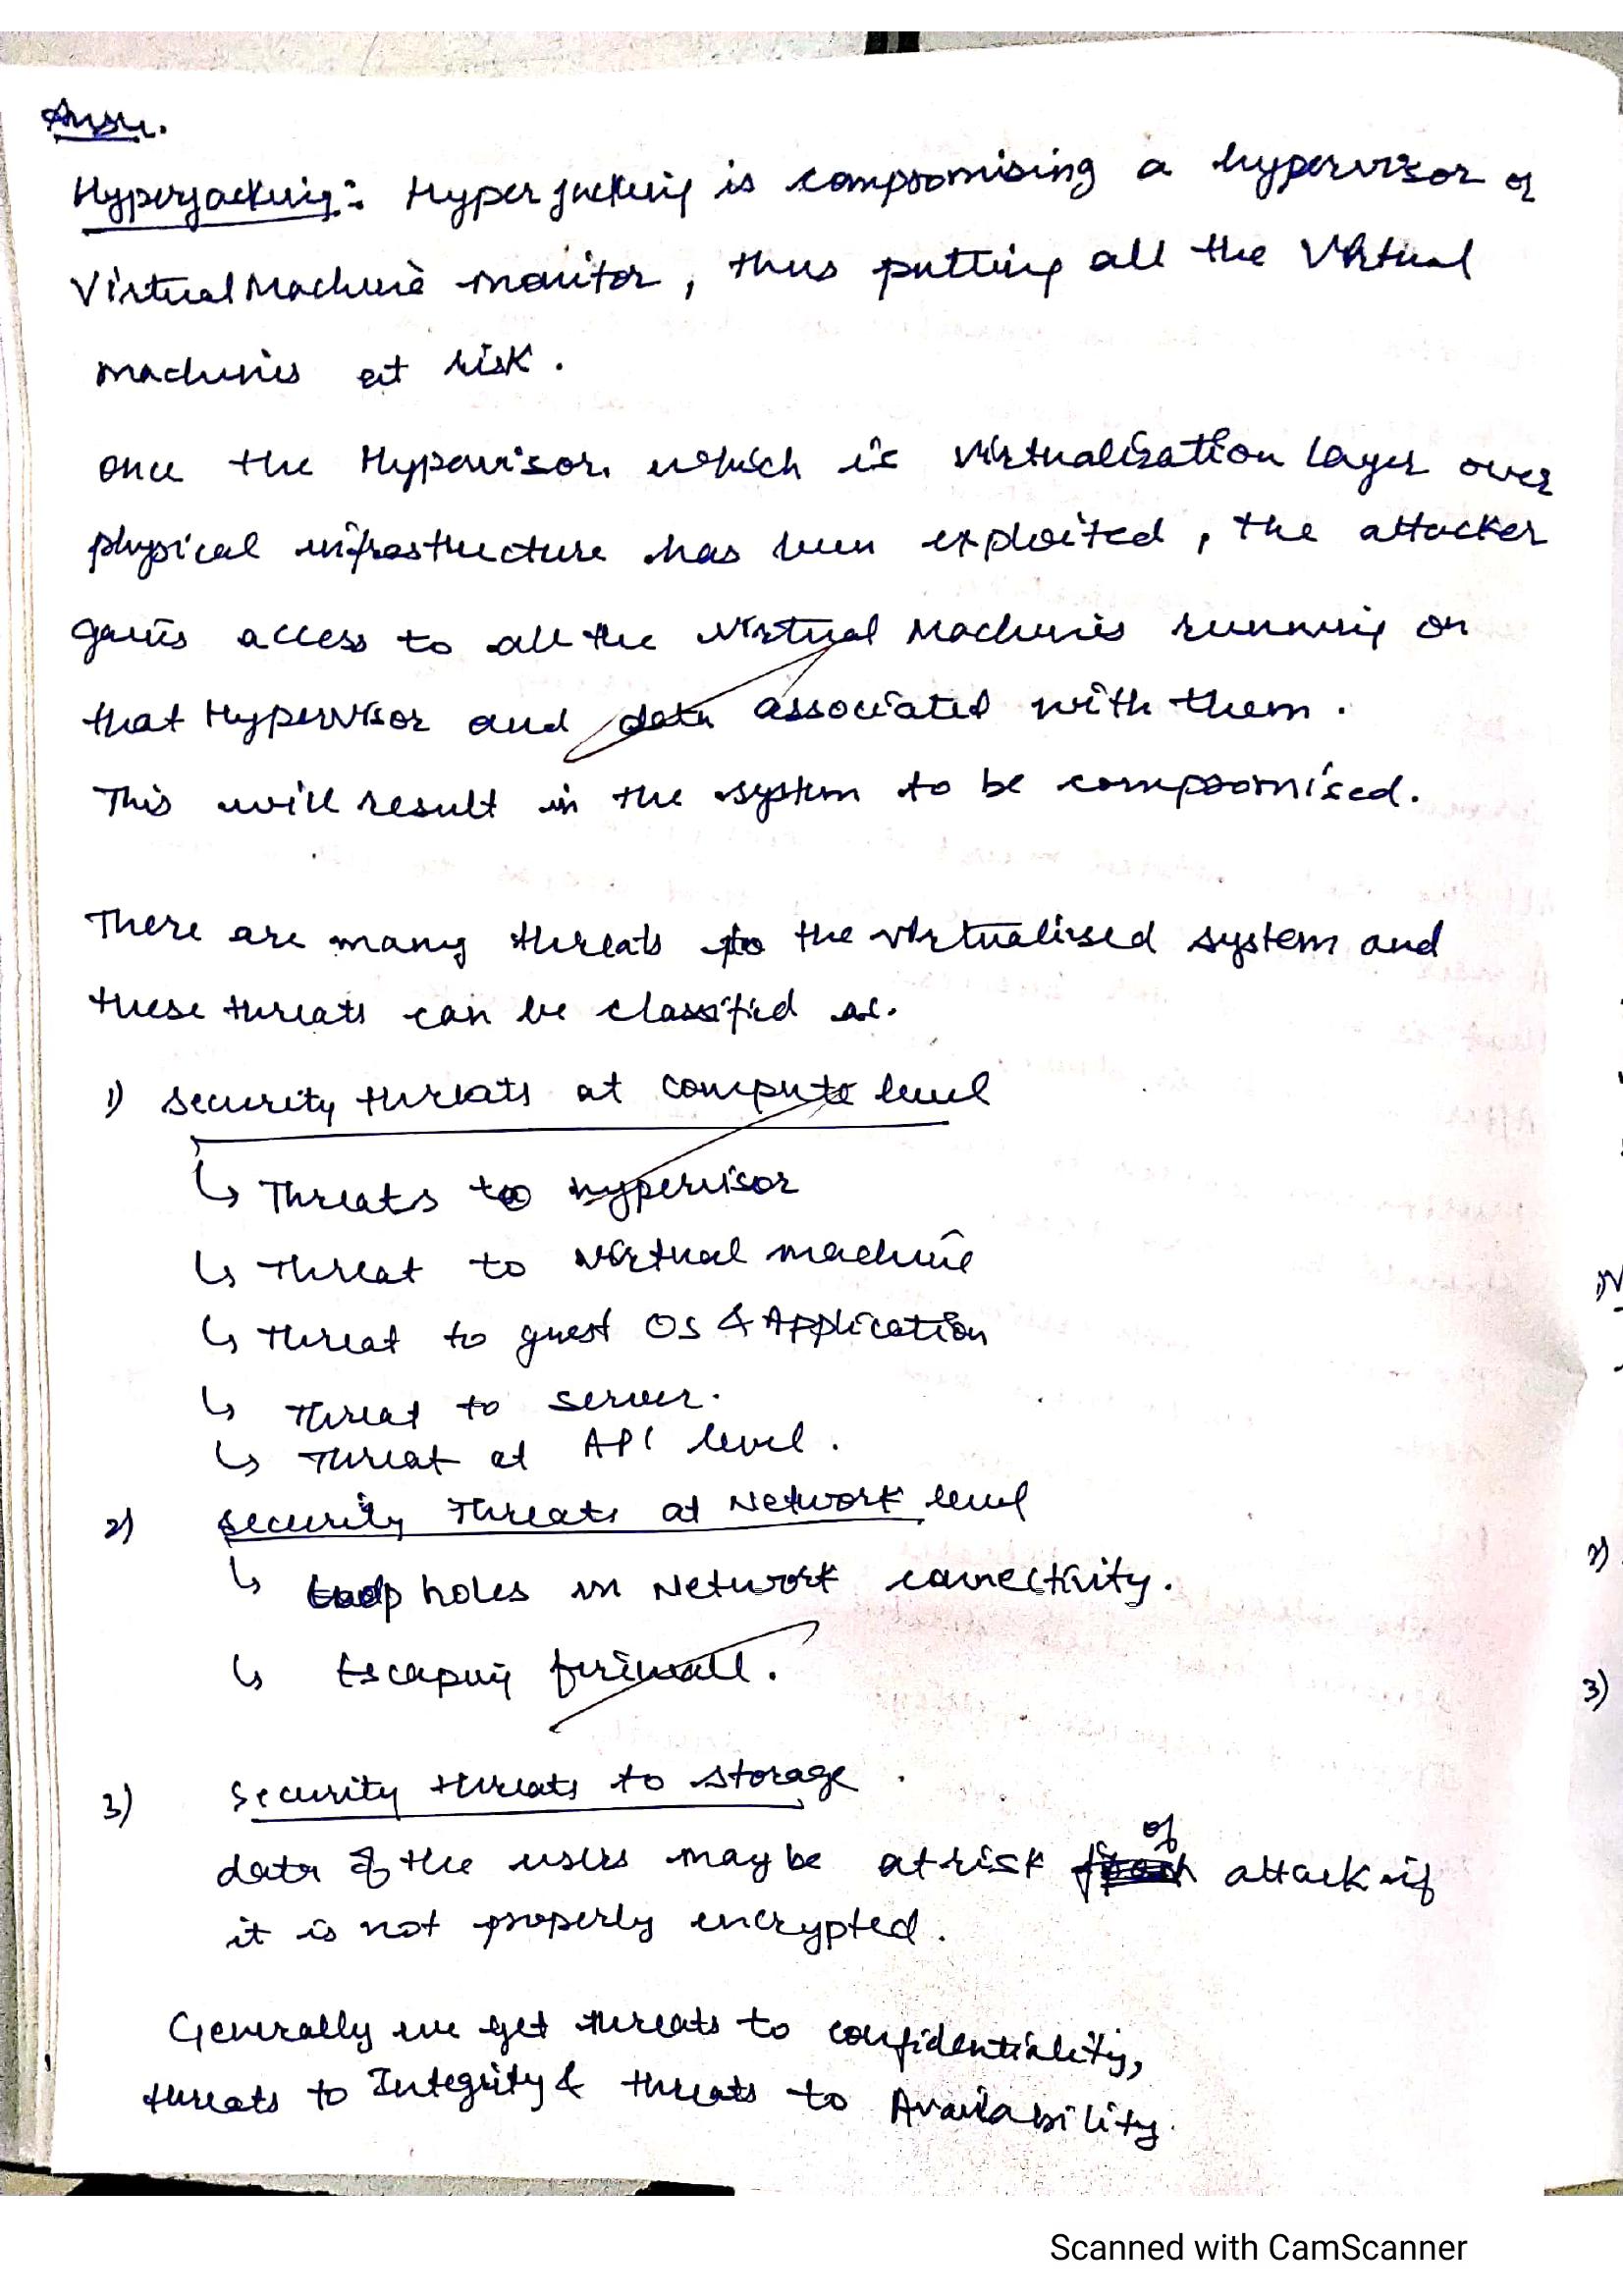 Ansr.
Hyperjacking: Hyperjacking is compromising a hypervisor or
Virtual Machine monitor, thus putting all the Virtual
machines at risk.
once the Hypervisor which is virtualization layer over
physical infrastructure has been exploited, the attacker
gains access to all the virtual Machines running on
that Hypervisor and data associated with them.
This will result in the system to be compromised.
There are many threats to the virtualised system and
these threats can be classified as.
1) security threats at compute level
↳ Threats to hypervisor
↳ Threat to virtual machine
↳ threat to guest OS & Application
↳ Threat to server.
↳ Threat at API level.
2) security Threats at Network level
↳ Loop holes in Network connectivity.
↳ Escaping firewall.
3) Security threats to storage.
data of the users may be at risk of attack if
it is not properly encrypted.
Generally we get threats to confidentiality,
threats to Integrity & threats to Availability.
2)
3)
Scanned with CamScanner